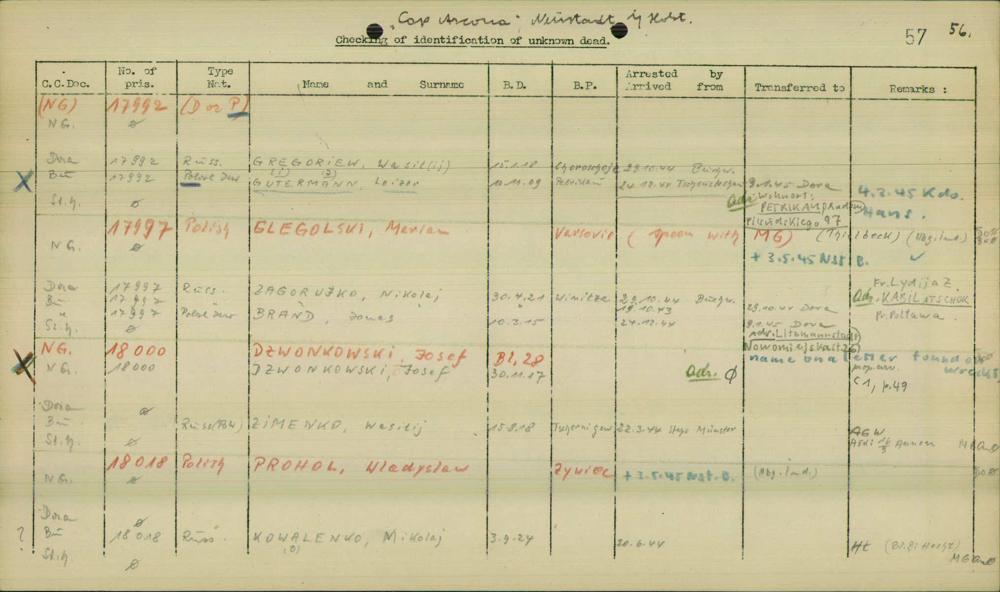 "Cap Arcona", Neustadt i/ Holst.
57 56.
Checking of identification of unknown dead.
C.C.Doc. No. of pris. Type Nat. Name and Surname B.D. B.P. Arrested by Arrived from Transferred to Remarks :
(NG) 17992 (D or P)
NG. ø
Dora 17992 Russ. GREGORIEW, Wasil(ij) 15.1.18 29.10.44 Buchw.
X Bu 17992 Polit. Jude GUTERMANN, Leizer 10.11.09 Petrikau 24.12.44 Tschenstochau 9.1.45 Dora 4.2.45 Kdo. Hans.
Adr. Wohnort: PETRIKAU
St.H. ø Pilsudskiego 97
17997 Polish GLEGOLSKI, Marian Varsovie (spoon with MG) (Thielbeck) (Nbg.land.)
NG. ø + 3.5.45 Nst. B.
Dora 17997 Russ. ZAGORUJKO, Nikolaj 30.4.21 Winitza 29.10.44 Buchw. Fr. Lydija Z.
Bu 17997 19.10.43 29.10.44 Dora Adr. KABILATSCHOK
" 17997 Polit. Jude BRAND, Jonas 10.3.15 24.12.44 9.1.45 Dora Pr. Poltawa.
St.H. ø Adr. Litzmannstadt
Nowomiejska 126
X NG. 18000 DZWONKOWSKI, Josef Bl. 28 name on a letter found on wreck
NG. 18000 DZWONKOWSKI, Josef 30.11.17 Adr. ø
C1, p.49
Dora ø
Bu Russ(Pow) ZIMENKO, Wasilij 15.8.18 Tschernigow 22.3.44 Stapo Münster AGW
St.H. ø
18018 Polish PROHOL, Wladyslaw Zywiec + 3.5.45 Nst. B. (Nbg.land.)
NG. ø
Dora ø
? Bu 18018 Russ. KOWALENKO, Mikolaj 3.9.24 20.6.44 Ht
(o)
St.H. ø